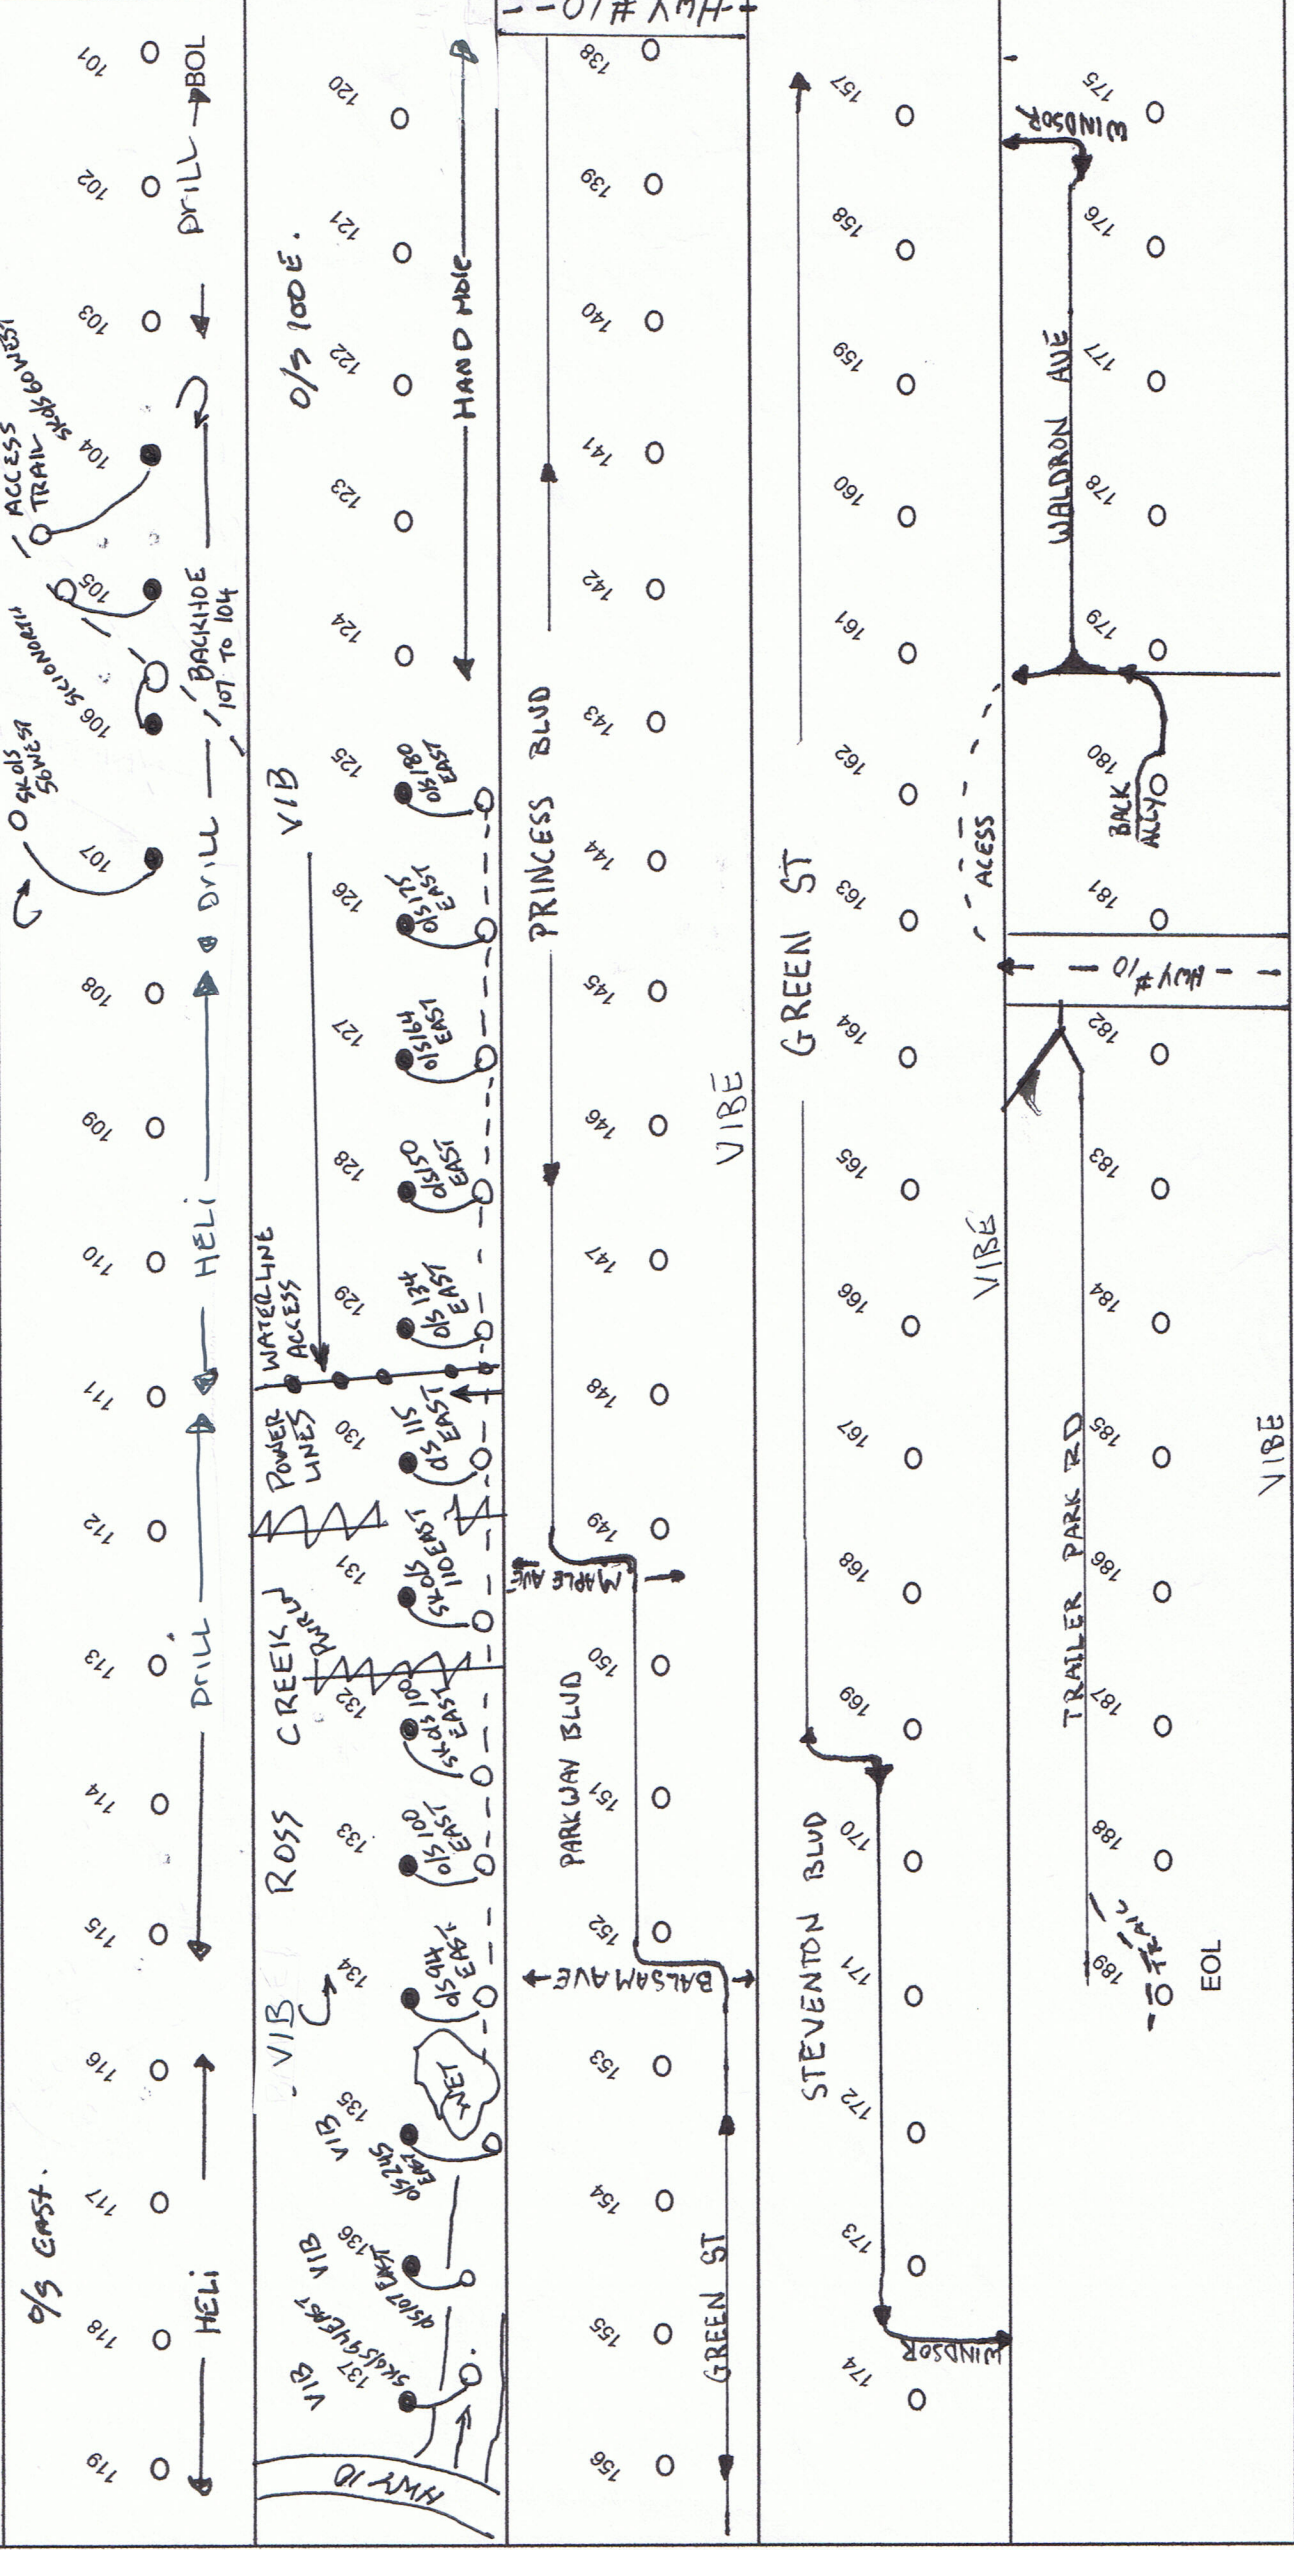 101
102
103
104
105
106
107
108
109
110
111
112
113
114
115
116
117
118
119
DrILL
BOL
ACCESS
TRAIL
SKO/S 60 WEST
NORTH
O SKO/S
50 WEST
BACKHOE
107 TO 104
DrILL
HELi
DrILL
HELi
O/S EAST.
120
121
122
123
124
125
126
127
128
129
130
131
132
133
134
135
136
137
O/S 100E.
HAND HOLE
VIB
O/S 180
EAST
O/S 175
EAST
O/S 164
EAST
O/S 150
EAST
O/S 134
EAST
WATERLINE
ACCESS
POWER
LINES
O/S 115
EAST
SKO/S
110 EAST
ROSS CREEK
SKO/S 100
EAST
O/S 100
EAST
O/S 94
EAST
VIB
WET
VIB
O/S 245
EAST
VIB
O/S 107 EAST
VIB
SKO/S 94 EAST
HWY 10
HWY #10
138
139
140
141
142
143
144
145
146
147
148
149
150
151
152
153
154
155
156
PRINCESS BLVD
VIBE
MAPLE AVE
PARKWAY BLVD
BALSAM AVE
GREEN ST
157
158
159
160
161
162
163
164
165
166
167
168
169
170
171
172
173
174
GREEN ST
VIBE
STEVENTON BLVD
WINDSOR
ACESS
175
176
177
178
179
180
181
182
183
184
185
186
187
188
189
WINDSOR
WALDRON AVE
BACK
ALLY
HWY #10
TRAILER PARK RD
VIBE
TRAIL
EOL